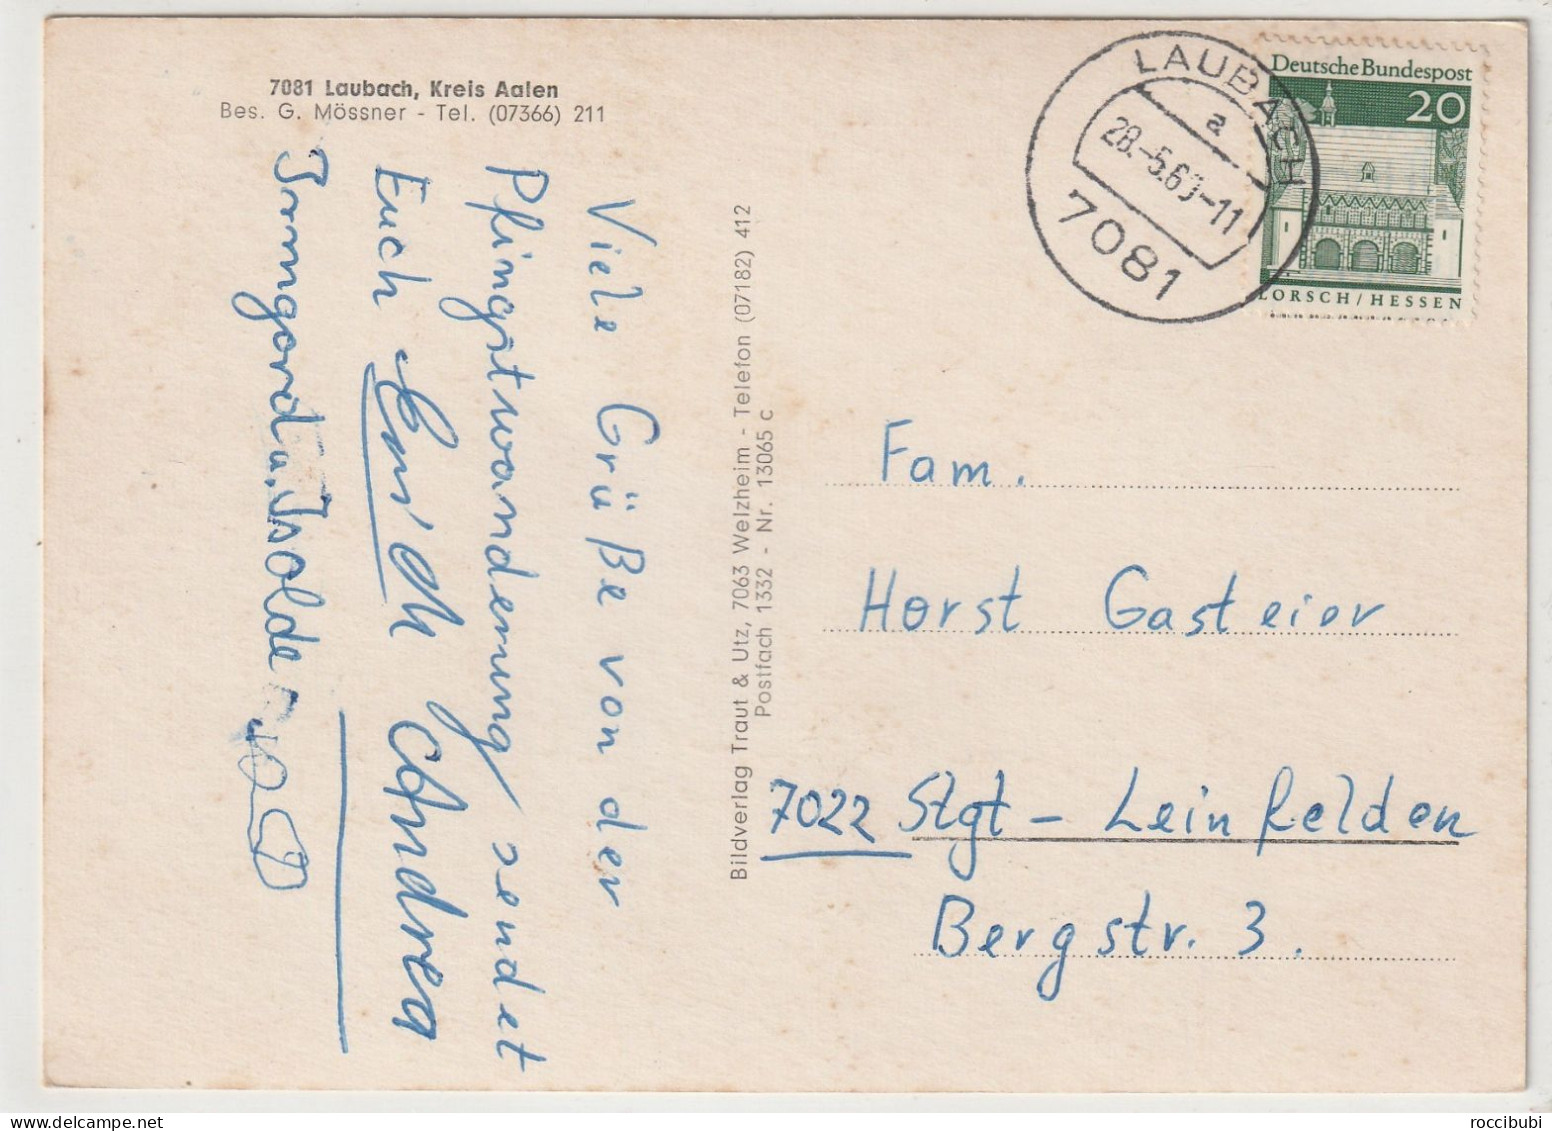 7081 Laubach, Kreis Aalen
Bes. G. Mössner - Tel. (07366) 211
Viele Grüße von der
Pfingstwanderung sendet
Euch Erich Andrea
Irmgard u. Isolde
Bildverlag Traut & Utz, 7063 Welzheim - Telefon (07182) 412
Postfach 1332 - Nr. 13065 c
LAUBACH
a
28.-5.6 -11
7081
Deutsche Bundespost
20
LORSCH/HESSEN
Fam.
Horst Gasteier
7022 Stgt - Leinfelden
Bergstr. 3.
roccibubi